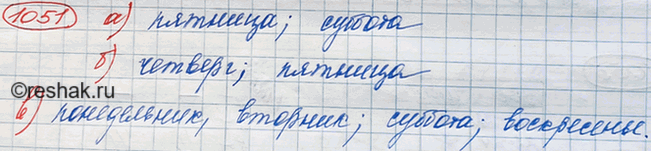 1051 а) пятница; суббота
б) четверг; пятница
©reshak.ru
в) понедельник, вторник; суббота; воскресенье.